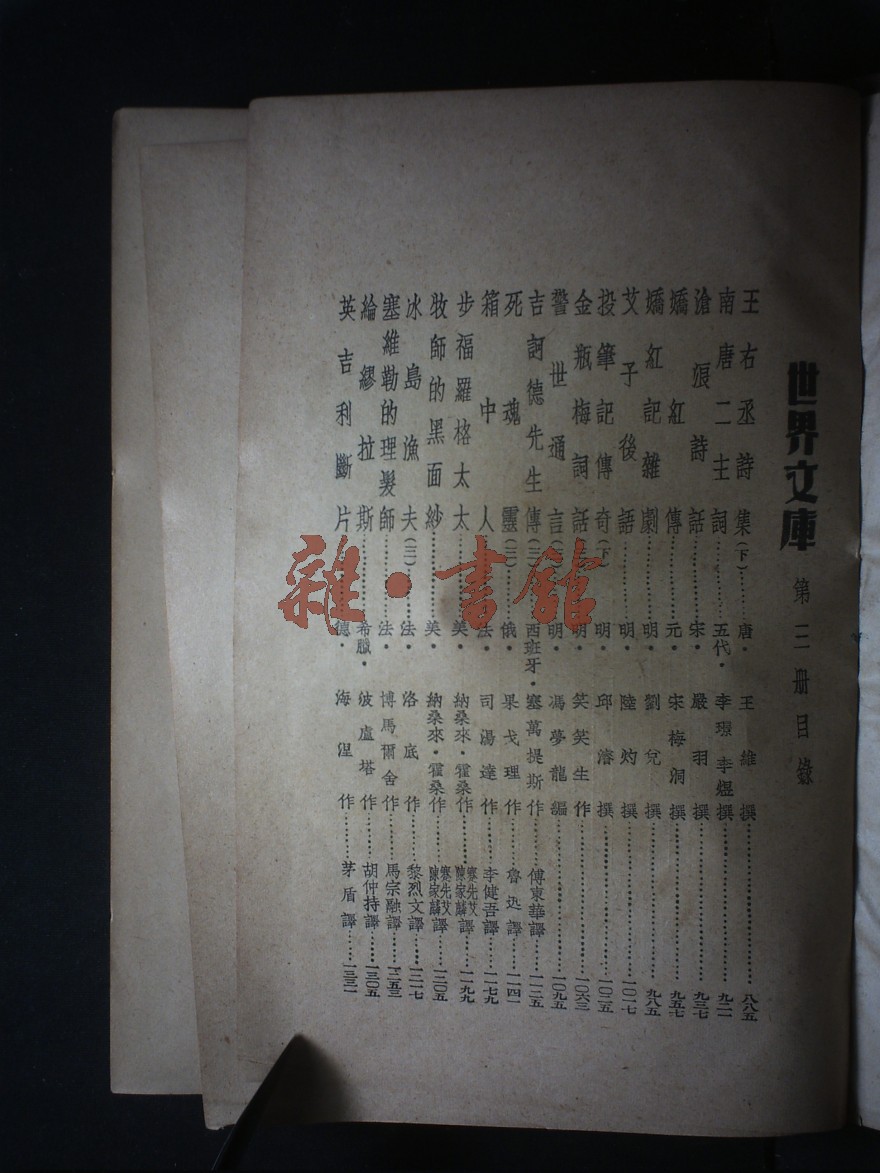 世界文庫 第三册目錄
王右丞詩集(下)………唐•王維撰………八八五
南唐二主詞………五代•李璟李煜撰………九二一
滄浪詩話………宋•嚴羽撰………九三七
嬌紅傳………元•宋梅洞撰………九五七
嬌紅記雜劇………明•劉兌撰………九八五
艾子後語………明•陸灼撰………一〇一七
投筆記傳奇(下)………明•邱濬撰………一〇二五
金瓶梅詞話………明•笑笑生作………一〇六三
警世通言………明•馮夢龍編………一〇九五
吉訶德先生傳(三)………西班牙•塞萬提斯作………傅東華譯………一一二五
死魂靈(三)………俄•果戈理作………魯迅譯………一一四一
箱中人………法•司湯達作………李健吾譯………一一七九
步福羅格太太………美•納桑來•霍桑作………蹇先艾 陳家麟譯………一一九九
牧師的黑面紗………美•納桑來•霍桑作………蹇先艾 陳家麟譯………一二〇五
冰島漁夫(三)………法•洛底作………黎烈文譯………一二一七
塞維勒的理髮師………法•博馬爾舍作………馬宗融譯………一二五三
綸繆拉斯………希臘•波盧塔作………胡仲持譯………一三〇五
英吉利斷片………德•海涅作………茅盾譯………一三三一
雜•書館